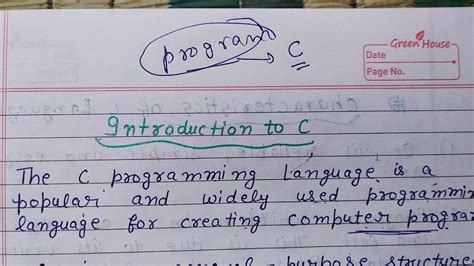 Green House
program
C
Date
Page No.
Introduction to C
The C programming language is a
popular and widely used programmin
language for creating computer program
purpose structure